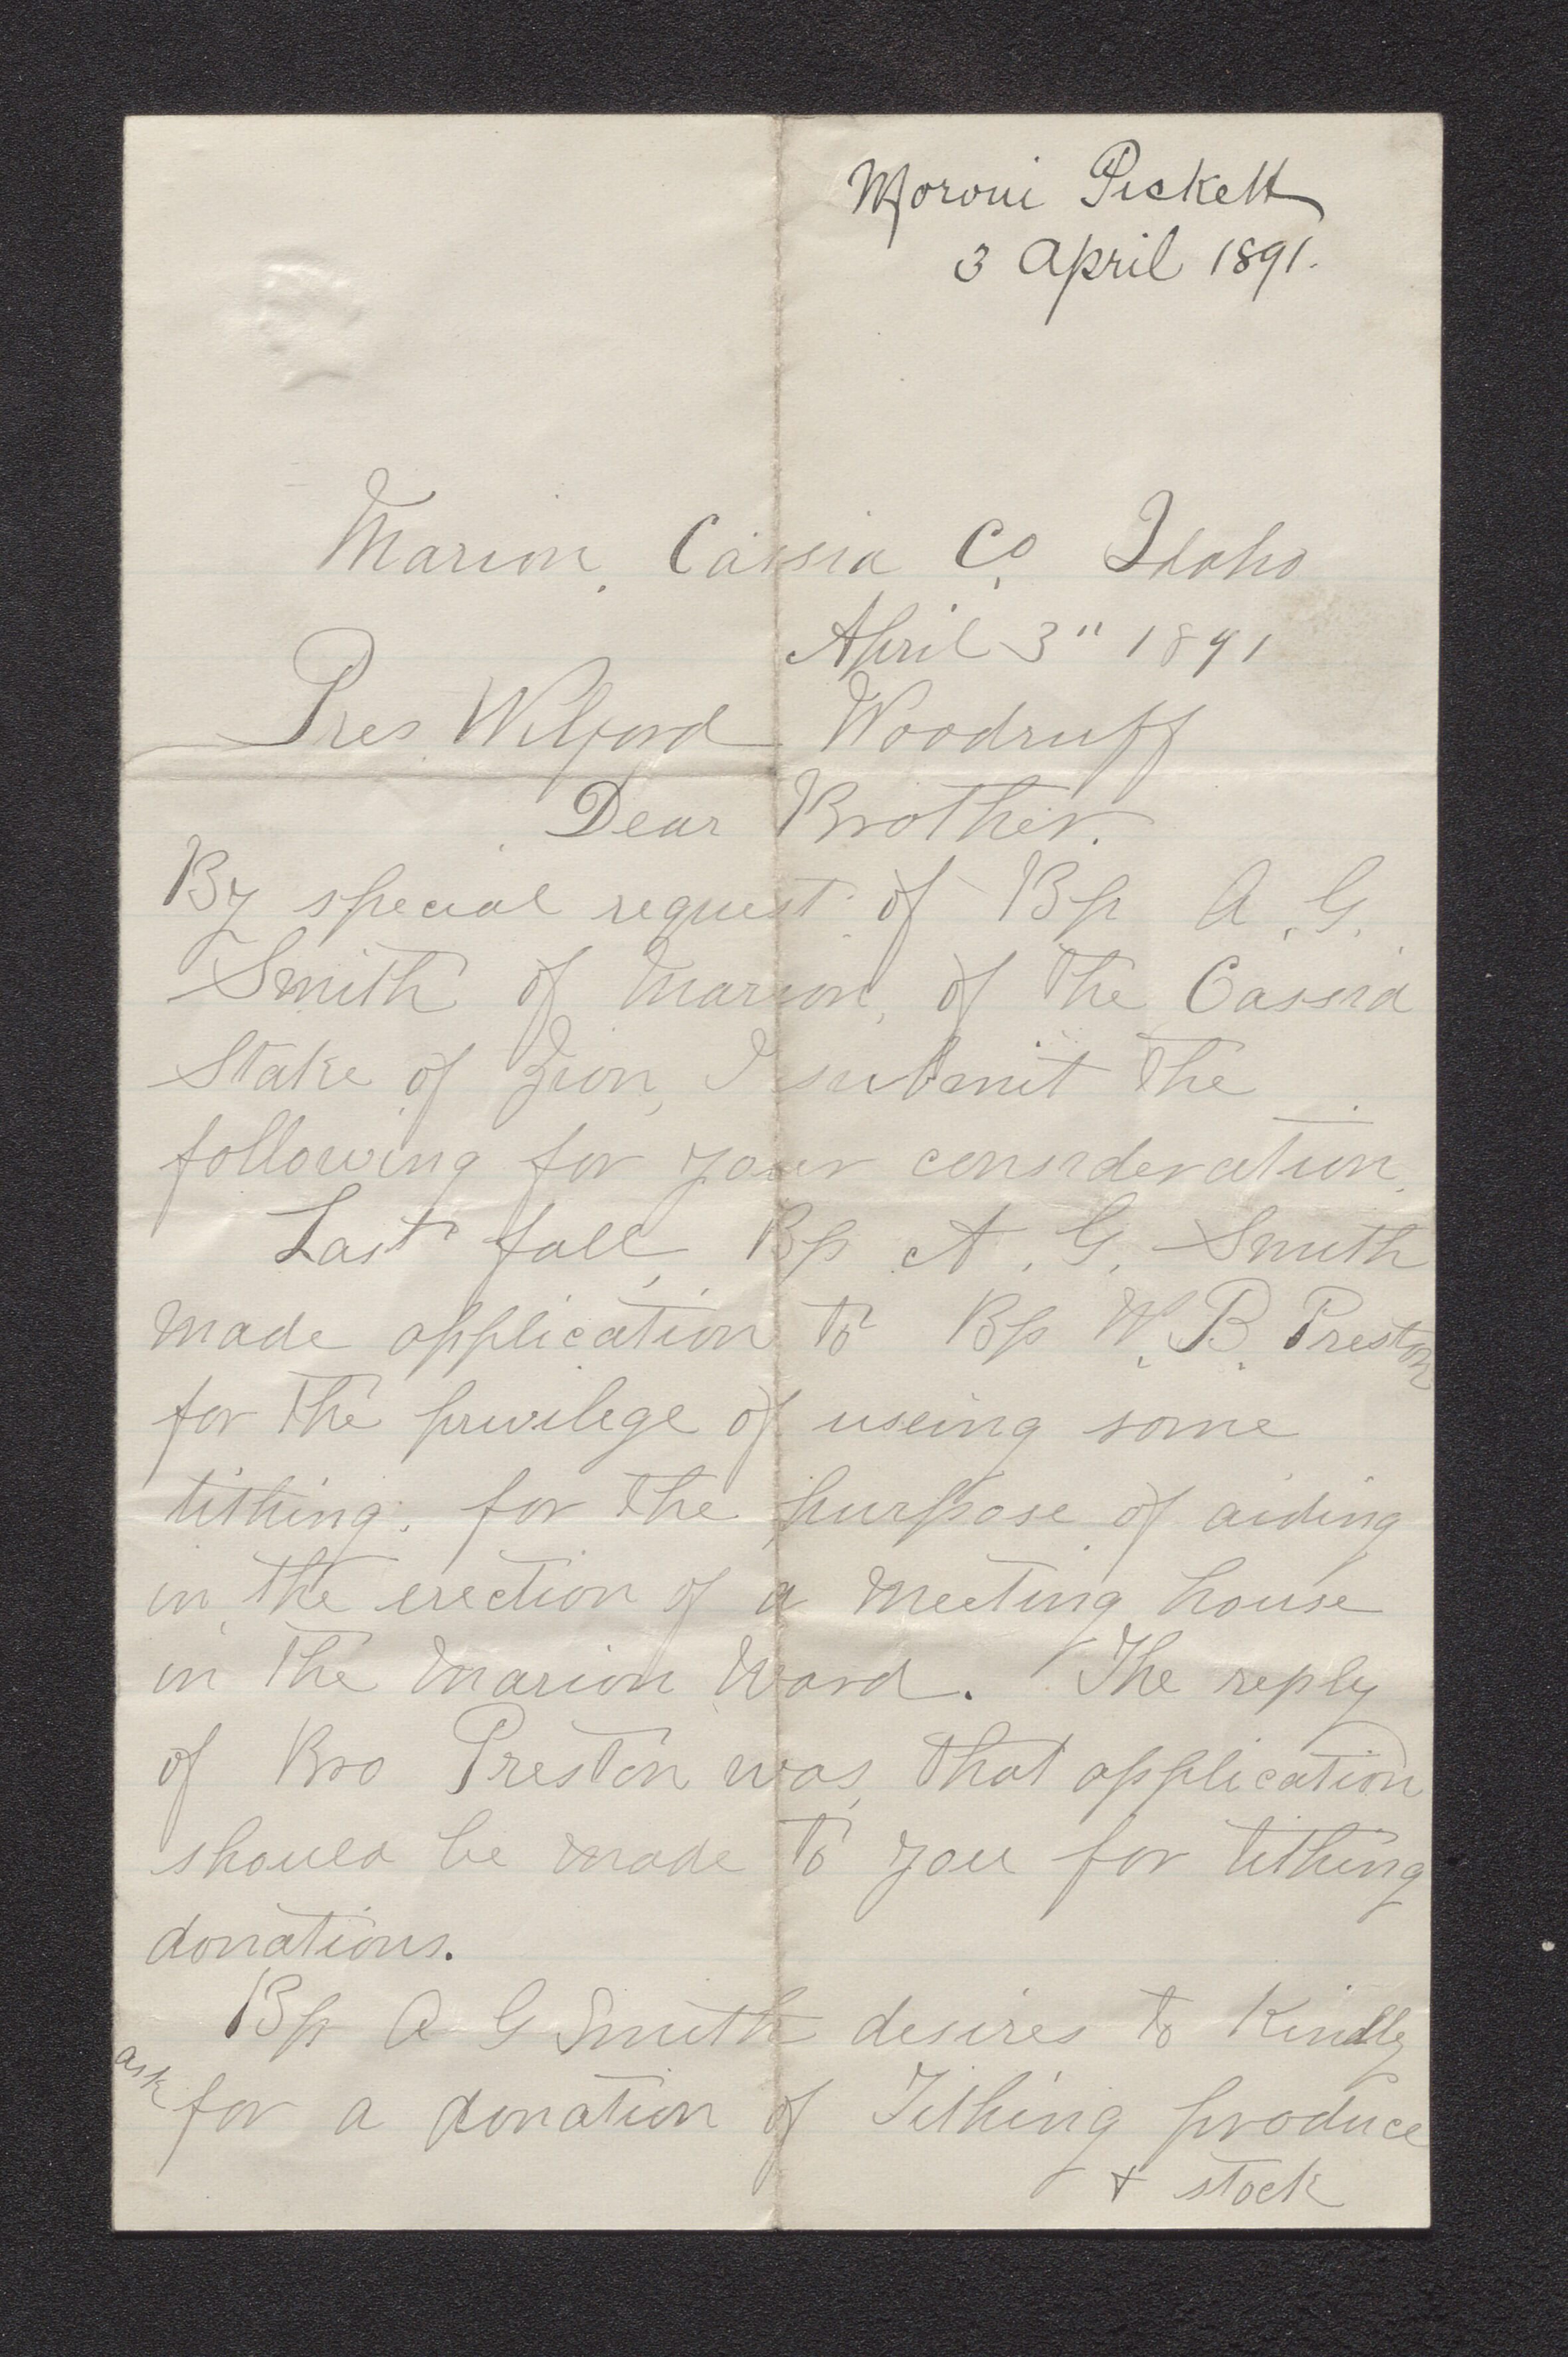 Moroni Pickett
3 April 1891.
Marion, Cassia Co. Idaho
April 3" 1891
Pres. Wilford Woodruff
Dear Brother.
By special request of Bp A. G.
Smith of Marion, of the Cassia
Stake of Zion, I submit the
following for your consideration.
Last fall, Bp A. G. Smith
made application to Bp W. B. Preston
for the privilege of useing some
tithing, for the purpose of aiding
in the erection of a meeting house
in the Marion Ward. The reply
of Bro Preston was, that application
should be made to you for tithing
donations.
Bp A G Smith desires to kindly
ask for a donation of Tithing produce
& stock